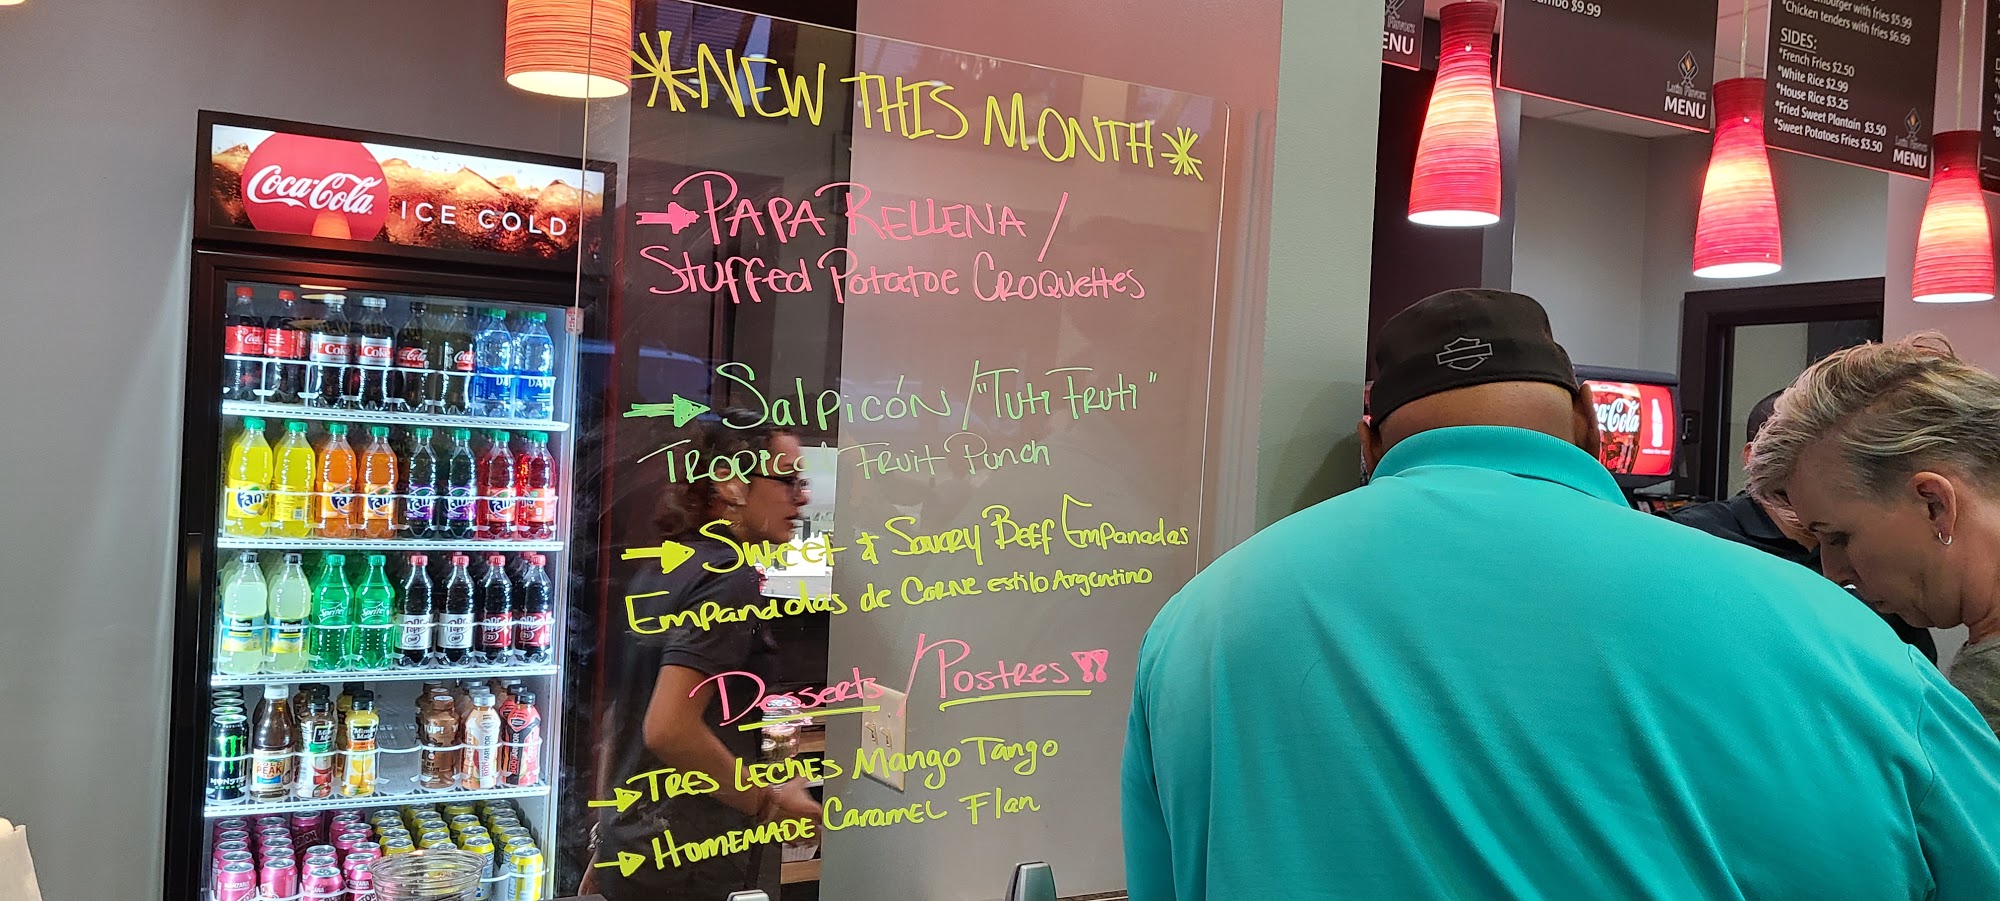 *NEW THIS MONTH*
PAPA RELLENA /
Stuffed Potatoe CROQUEttes
Salpicón / "Tuti Fruti"
TROPICal FRuit Punch
Sweet & Savory BEEF Empanadas
Empanadas de CARNE estilo Argentino
Desserts / Postres!!
TRES LECHES Mango Tango
HOMEMADE CARAMEL Flan
Coca-Cola ICE COLD
MENU
$9.99
Latin Flavors
MENU
with fries $5.99
*Chicken tenders with fries $6.99
SIDES:
*French Fries $2.50
*White Rice $2.99
*House Rice $3.25
*Fried Sweet Plantain $3.50
*Sweet Potatoes Fries $3.50
Latin Flavors
MENU
Coca-Cola
Coke
Coke
Fanta
Sprite
Sprite
PEAK